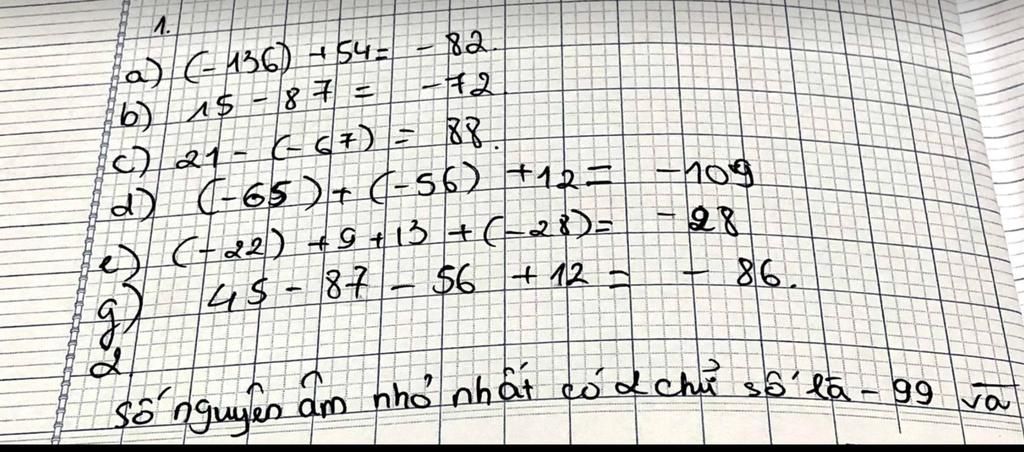 1.
a) (-136) + 54 = - 82.
b) 15 - 87 = - 72
c) 21 - (-67) = 88.
d) (-65) + (-56) + 12 = - 109
e) (-22) + 9 + 13 + (-28) = - 28
g) 45 - 87 - 56 + 12 = - 86.
2.
Số nguyên âm nhỏ nhất có 2 chữ số là - 99 và